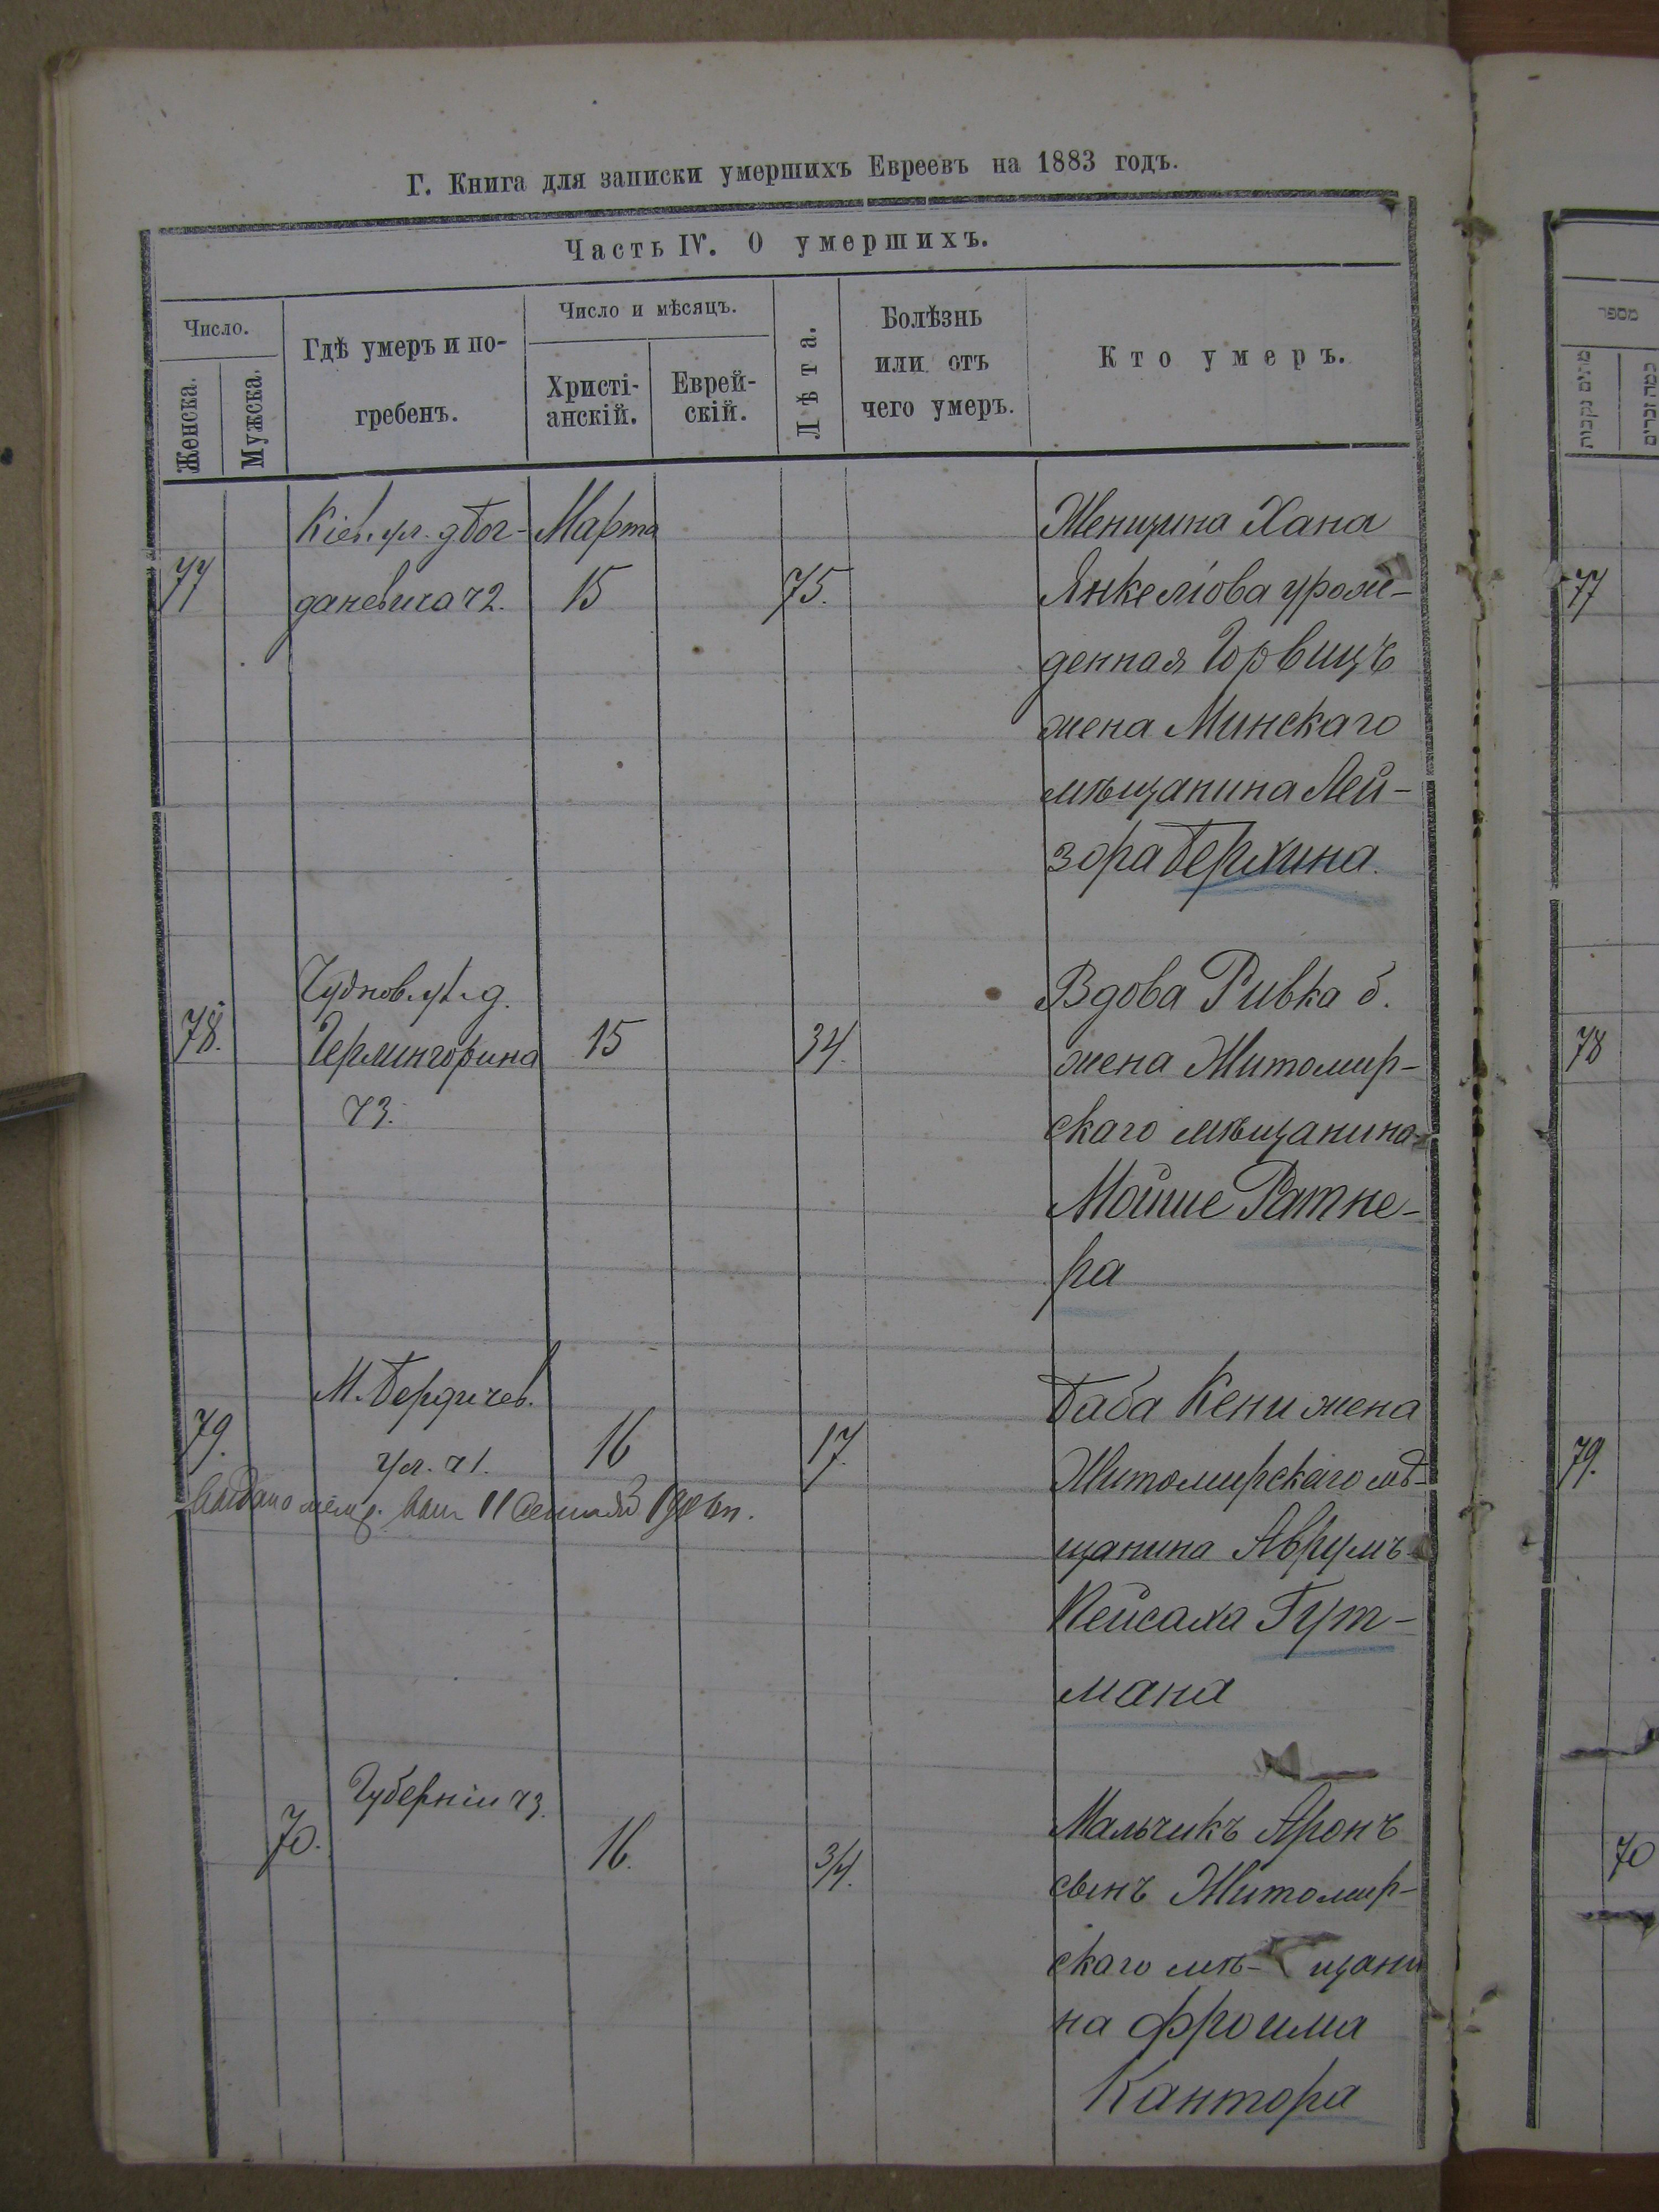 Г. Книга для записки умершихъ Евреевъ на 1883 годъ.
Часть IV. О умершихъ.
Число.
Женска.
Мужска.
Гдѣ умеръ и по-
гребенъ.
Число и мѣсяцъ.
Христі-
анскій.
Еврей-
скій.
Лѣта.
Болѣзнь
или отъ
чего умеръ.
Кто умеръ.
מספר
77
Кіев. ул. д Бог-
даневича ч2.
Марта
15
75.
Женщина Хана
Янкеліова урож-
денная Горвицъ
жена Минскаго
мѣщанина Лей-
зора Берлина.
77
78.
Чуднов. ул. д.
ч3.
15
34.
Вдова Ривка б.
жена Житомир-
скаго мѣщанина
Мойше Ратне-
ра
78
79.
М. Бердичев.
ул. ч1.
16
17.
Баба Кени жена
Житомирскаго мѣ-
щанина Аврумъ
Пейсаха Гут-
мана
79.
Выдано 11
70.
Губерніи ч3.
16.
3/4.
Мальчикъ Аронъ
сынъ Житомир-
скаго мѣ- щани
на Фроима
Кантора
70